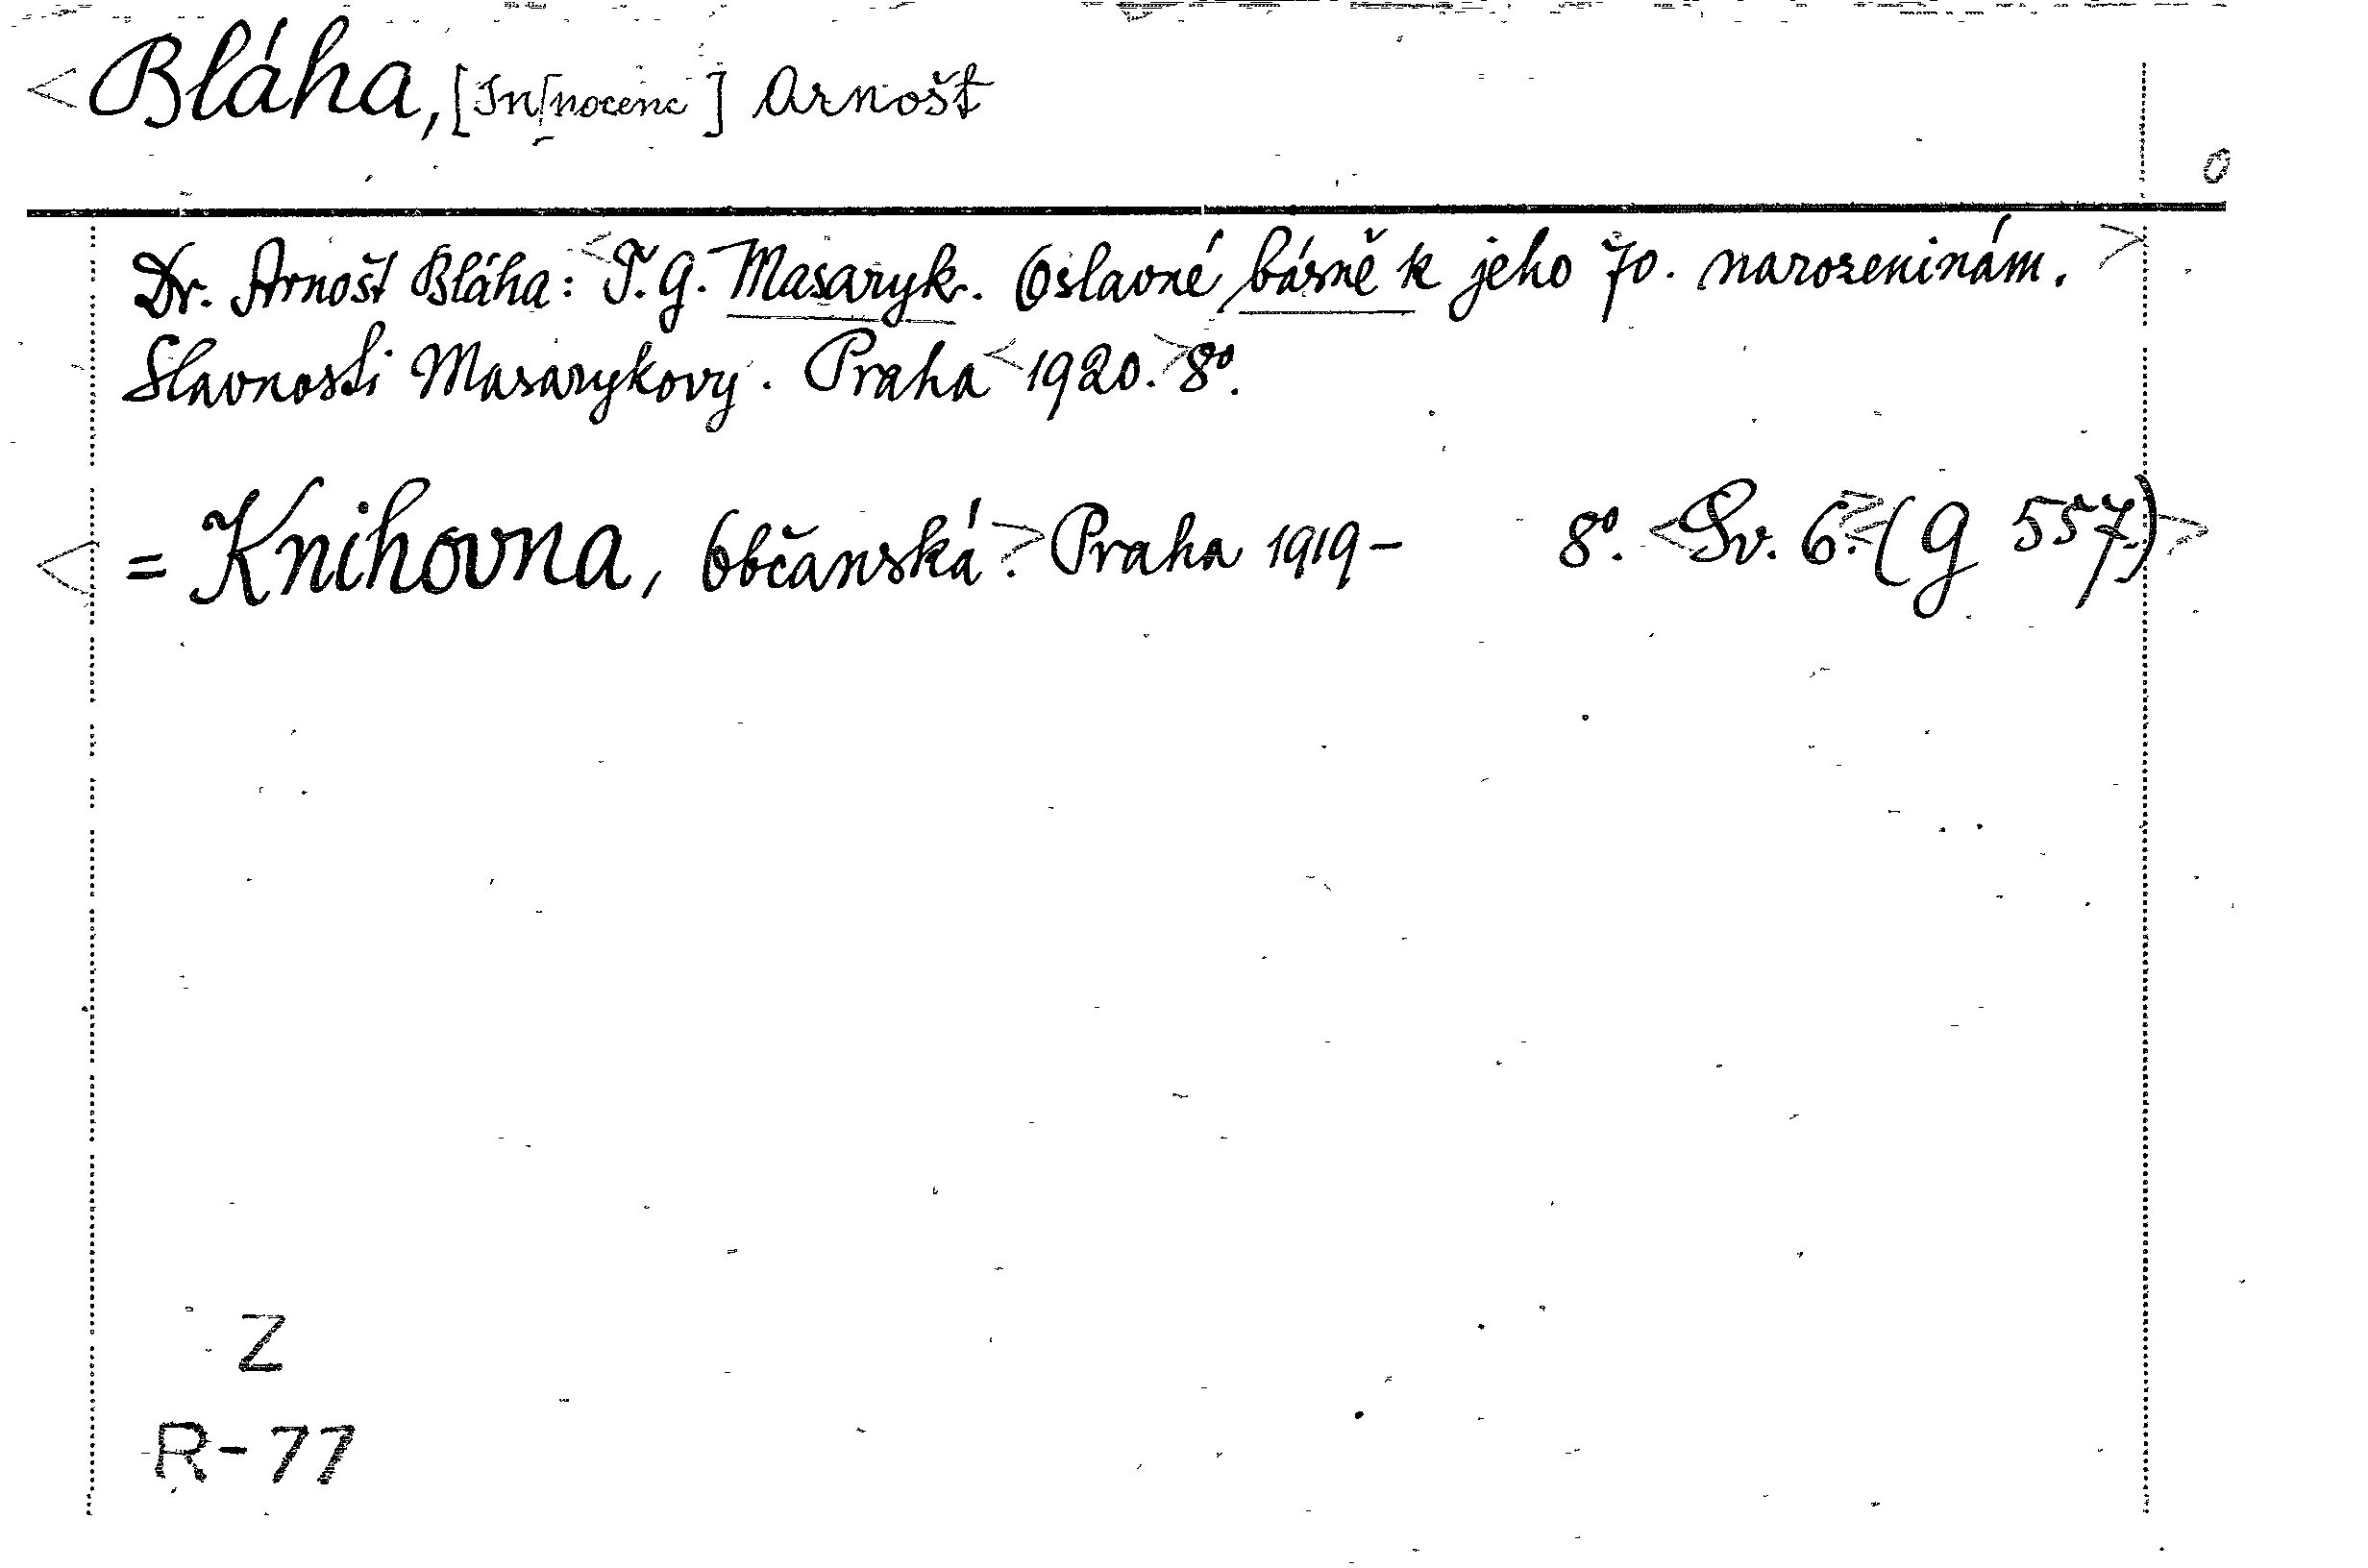 <Bláha, [In[nocenc] Arnošt
0
Dr. Arnošt Bláha: <T. G. Masaryk. Oslavné básně k jeho 70. narozeninám.>
Slavnosti Masarykovy. Praha <1920.> 8°.
<= Knihovna, Občanská.> Praha 1919– 8°. <Sv. 6.> <(G 557)>
Z
R-77